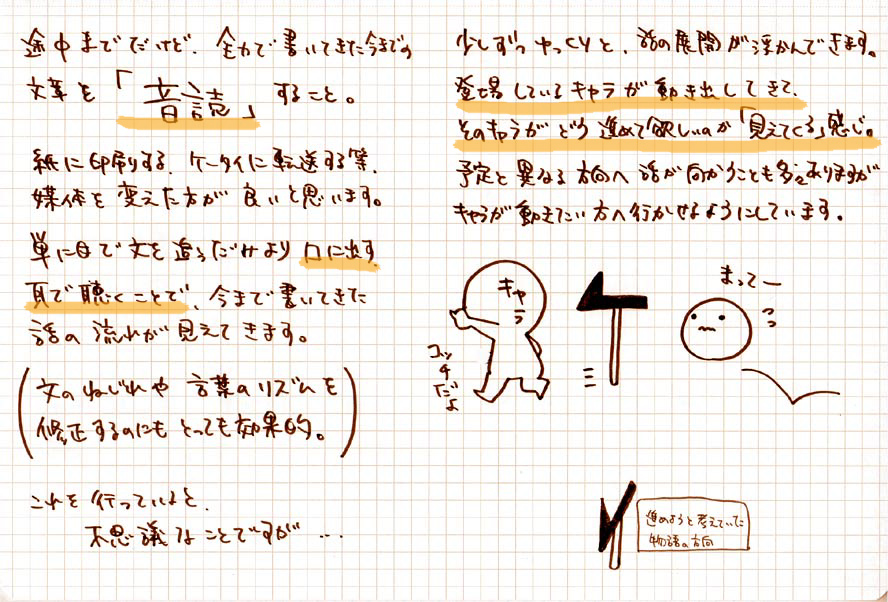 途中までだけど、全力で書いてきた今までの
文章を「音読」すること。
紙に印刷する、ケータイに転送する等、
媒体を変えた方が良いと思います。
単に目で文を追うだけより口に出す、
耳で聴くことで、今まで書いてきた
話の流れが見えてきます。
(文のねじれや言葉のリズムを
修正するのにもとっても効果的。)
これを行っていると、
不思議なことですが…
少しずつゆっくりと、話の展開が浮かんできます。
登場しているキャラが動き出してきて、
そのキャラがどう進めて欲しいのか「見えてくる」感じ。
予定と異なる方向へ話が向かうことも多々ありますが
キャラが動きたい方へ行かせるようにしています。
キャラ
コッチだよ
まってー
進めようと考えていた
物語の方向